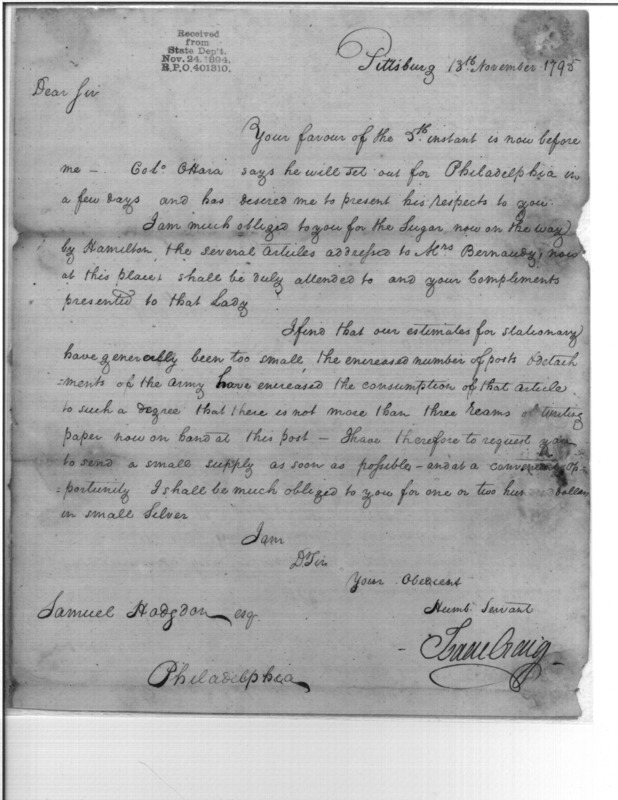 Received
from
State Dep't.
Nov. 24. 1894.
R.P.O. 401310.
Pittsburg 13th November 1795
Dear Sir
Your favour of the 5th instant is now before
me - Colo OHara says he will set out for Philadelphia in
a few days and has desired me to present his respects to you
I am much obliged to you for the Sugar now on the way
by Hamilton, the several Articles addressed to Mrs Bernaudy, now
at this place, shall be duly attended to and your Compliments
presented to that Lady
I find that our estimates for stationary
have generally been too small, the encreased number of posts & detach
=ments of the army have encreased the consumption of that article
to such a degree that there is not more than three Reams of writing
paper now on hand at this post - I have therefore to request you
to send a small supply as soon as possible - and at a op=
=portunity I shall be much obliged to you for one or two dollars
in small Silver
I am
Dr Sir
Your Obedient
Humb. Servant
Isaac Craig
Samuel Hodgdon esq
Philadelphia